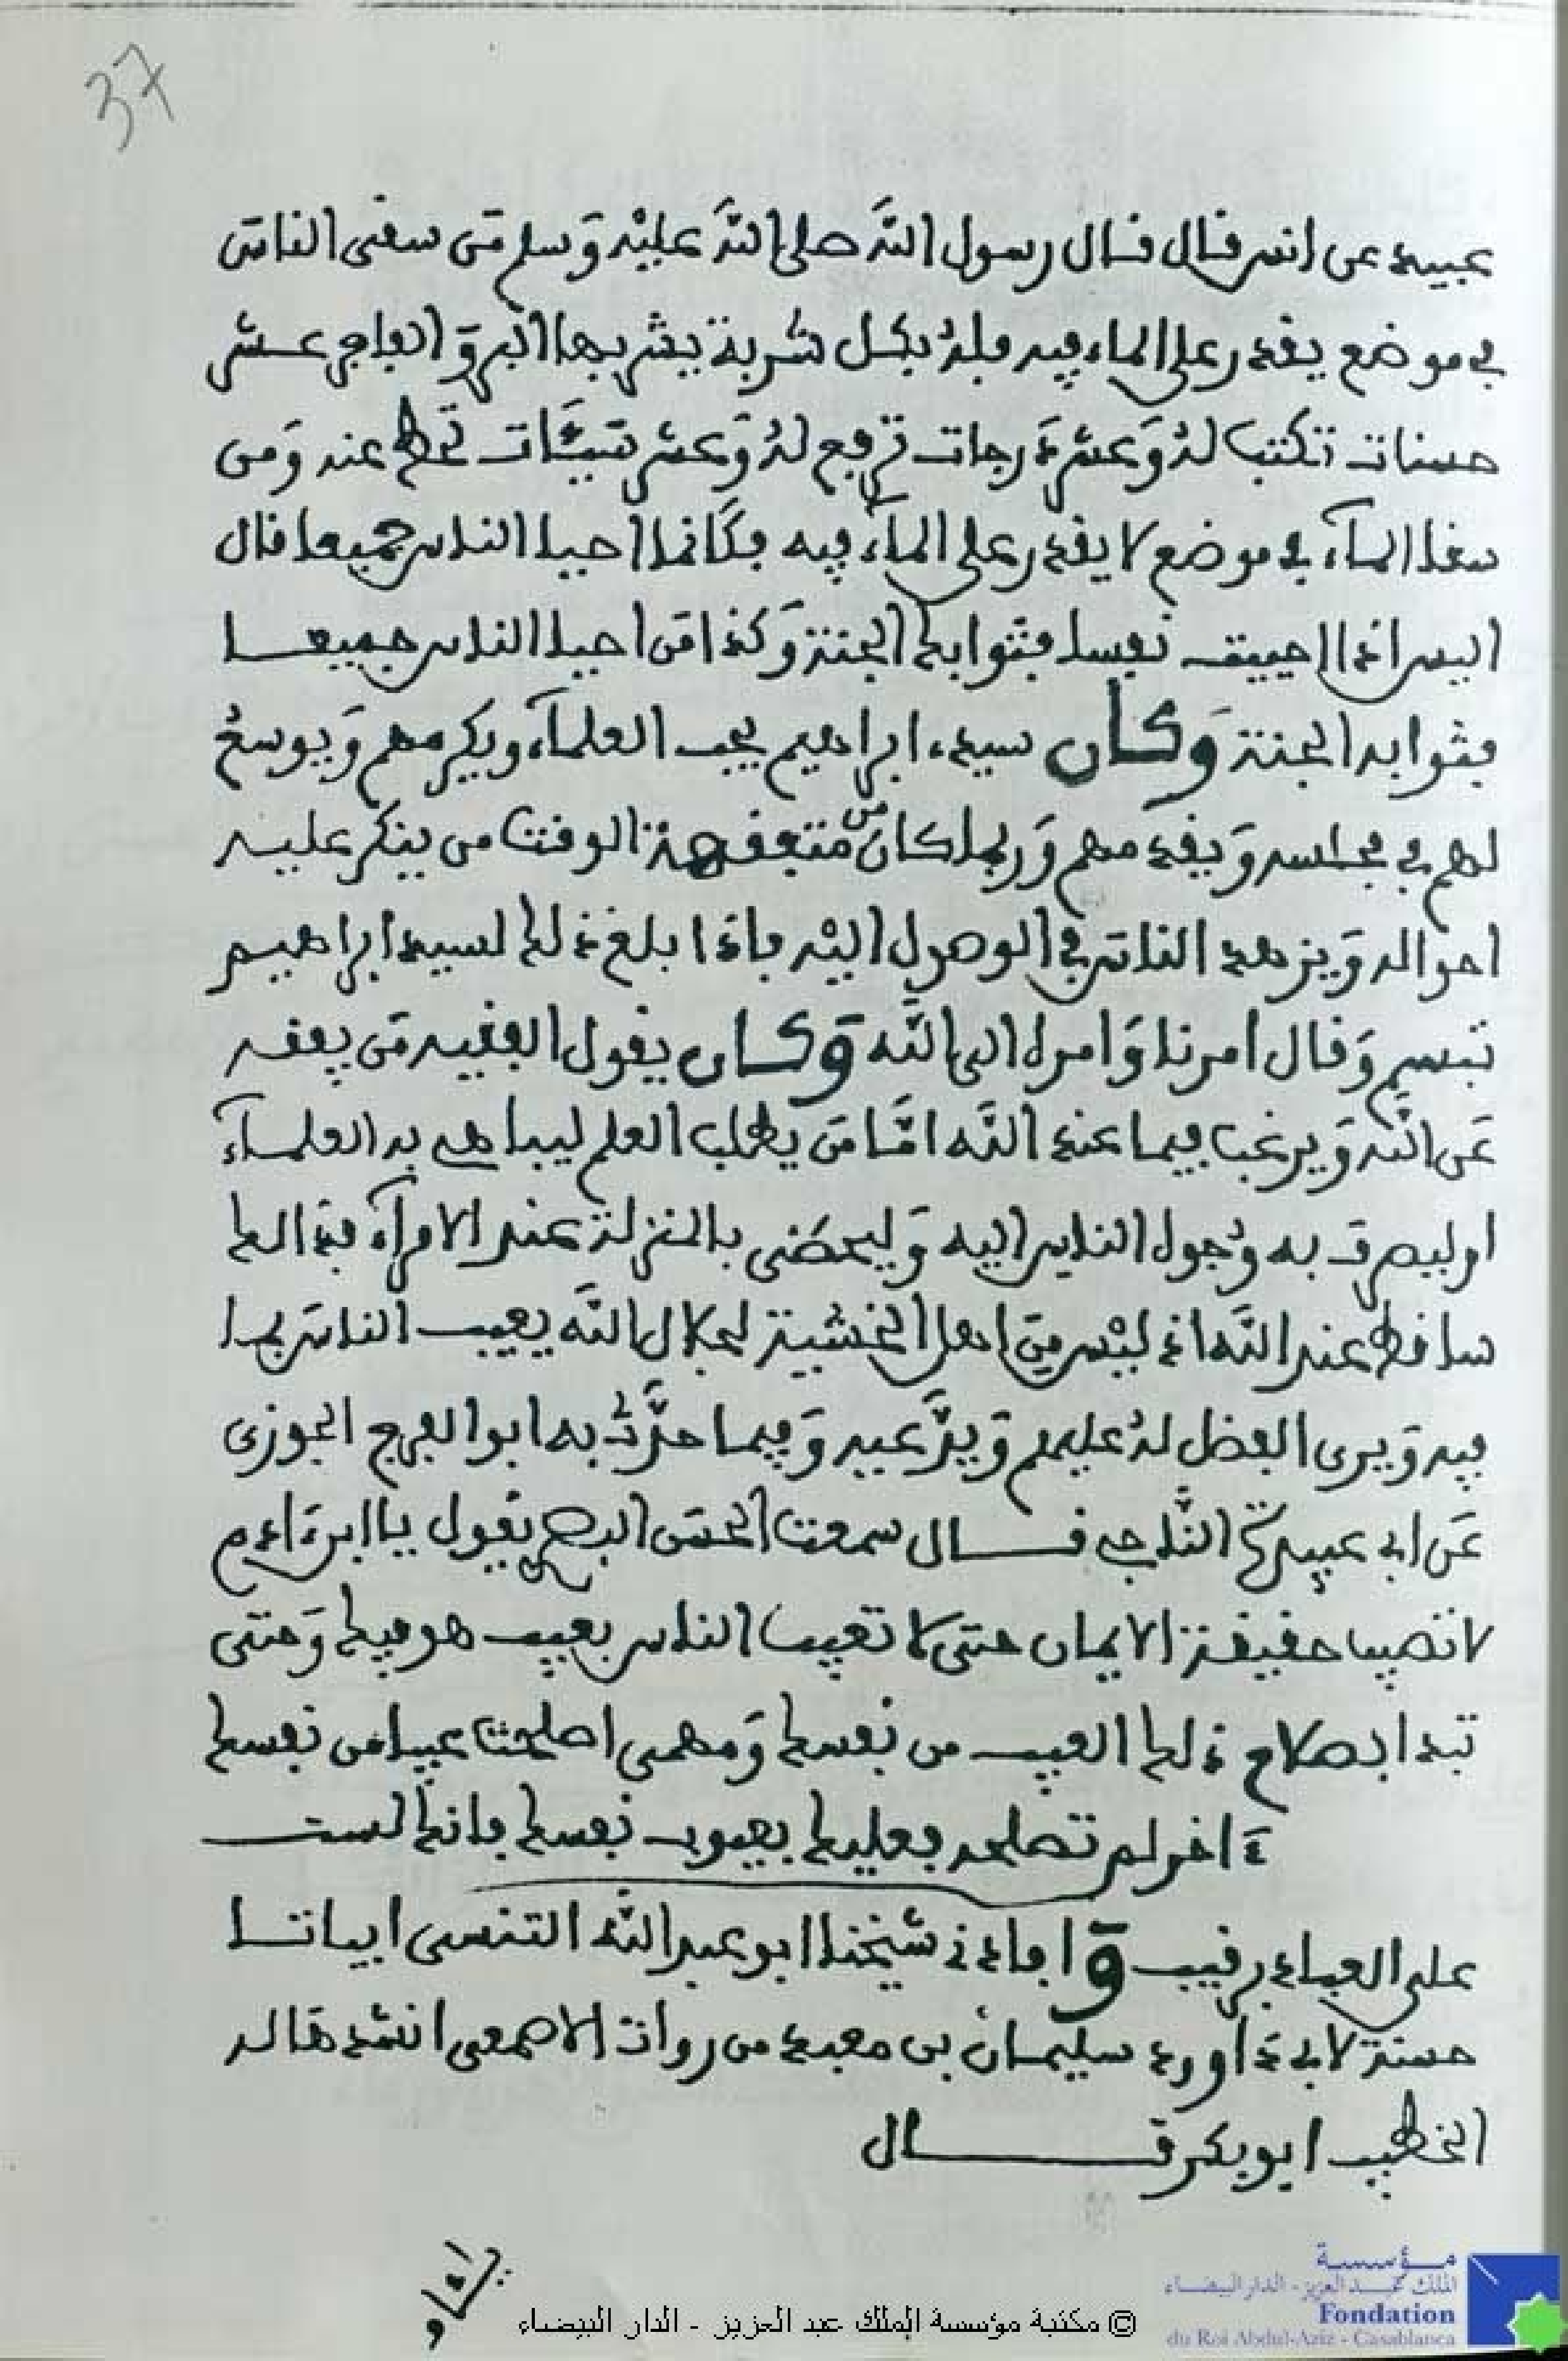 37
عبيد عن انس قال قال رسول الله صلى الله عليه وسلم من سقى الناس
في موضع يقدر على الماء فيه فله بكل شربة يشربها البر والفاجر عشر
حسنات تكتب له وعشر درجات ترفع له وعشر سيئات تحط عنه ومن
سقا الماء في موضع لا يقدر على الماء فيه فكانما احيا الناس جميعا قال
اليس انما احييت نفسا فثوابك الجنة وكذا من احيا الناس جميعا
فثوابه الجنة وكان سيدي ابراهيم يحب العلماء ويكرمهم ويوسع
لهم في مجلسه ويقدمهم وربما كان من متفقهة الوقت من ينكر عليه
احواله ويزهد الناس في الوصول اليه فاذا بلغ ذلك لسيد ابراهيم
تبسم وقال امرنا وامره الى الله وكان يقول الفقيه من يفقه
عن الله ويرغب فيما عند الله اما من يطلب العلم ليباهي به العلماء
او ليصرف به وجول الناس اليه وليحضى بالمنزلة عند الامراء فذالك
ساقط عند الله اذ ليس من اهل الخشية لجلال الله يعيب الناس بما
فيه ويرى الفضل له عليهم ويدعيه وفيما حدث به ابو الفرج الجوزي
عن ابي عبيدة الناجي قال سمعت الحسن البصري يقول يا ابن ءادم
لا تصيب حقيقة الايمان حتى لا تعيب الناس بعيب هو فيك وحتى
تبدا بصلاح ذلك العيب من نفسك ومهمى اصلحت عيبا من نفسك
ءاخر لم تصلحه فعليك بعيوب نفسك فانك لست
على العباد برقيب وافادني شيخنا ابو عبد الله التنسي ابياتا
حسنة لابي داود سليمان بن معبد من روات الاصمعي انشدها له
الخطيب ابو بكر قال
© مكتبة مؤسسة الملك عبد العزيز - الدار البيضاء
مؤسسة
الملك عبد العزيز - الدار البيضاء
Fondation
du Roi Abdul-Aziz - Casablanca